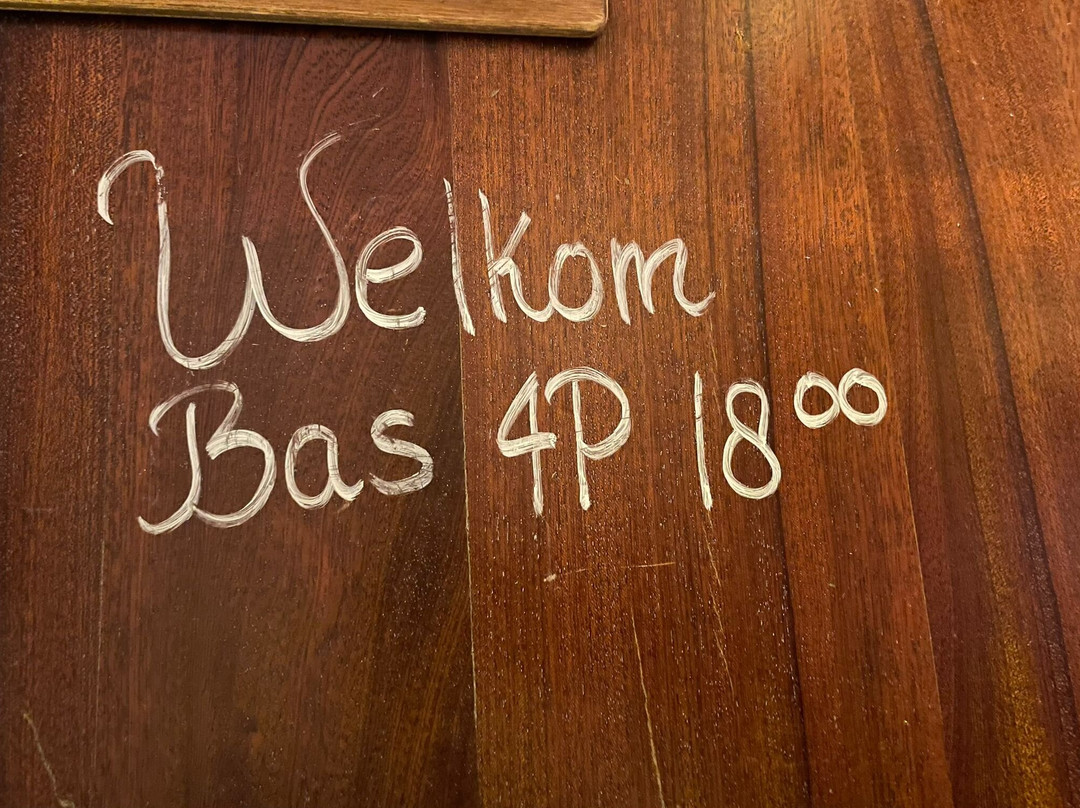 Welkom
Bas 4P 18⁰⁰